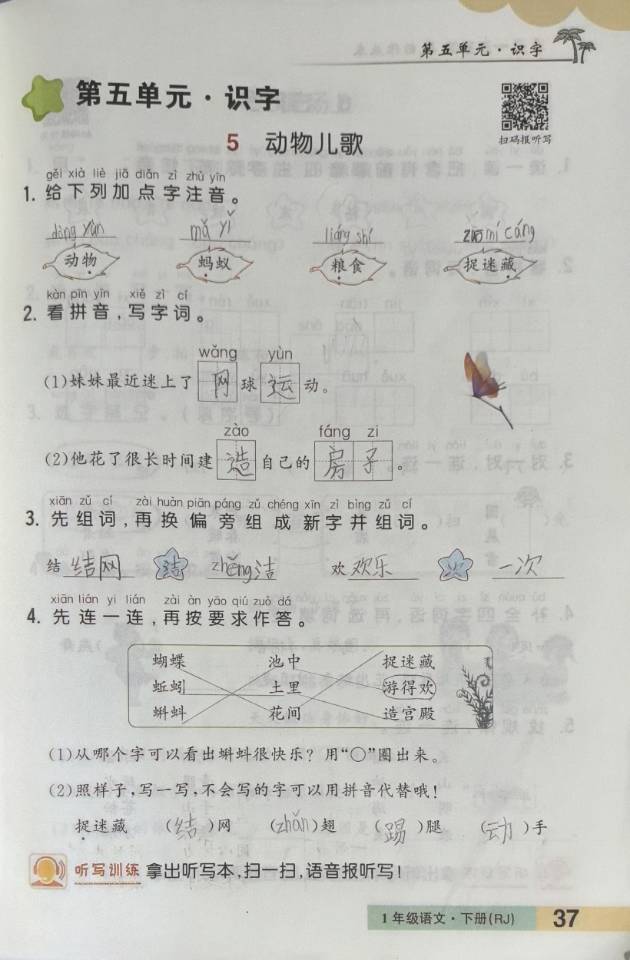 第五单元·识字
第五单元·识字
扫码报听写
5 动物儿歌
gěi xià liè jiā diǎn zì zhù yīn
1. 给下列加点字注音。
dòng yǐn mǎ yǐ liáng shí mí cáng
动物 蚂蚁 粮食 捉迷藏
kàn pīn yīn xiě zì cí
2. 看拼音,写字词。
wǎng yùn
(1)妹妹最近迷上了 网 球 运 动。
zào fáng zi
(2)他花了很长时间建 造 自己的 房 子 。
xiān zǔ cí zài huàn piān páng zǔ chéng xīn zì bìng zǔ cí
3. 先组词,再换偏旁组成新字并组词。
结 结网 洁 zhěng洁 欢 欢乐 次 一次
xiān lián yi lián zài àn yāo qiú zuò dá
4. 先连一连,再按要求作答。
蝴蝶 池中 捉迷藏
蚯蚓 土里 游得欢
蝌蚪 花间 造宫殿
(1)从哪个字可以看出蝌蚪很快乐?用“○”圈出来。
(2)照样子,写一写,不会写的字可以用拼音代替哦!
捉迷藏 (结)网 (zhǎn)翅 (踢)腿 (动)手
听写训练 拿出听写本,扫一扫,语音报听写!
1年级语文·下册(RJ) 37